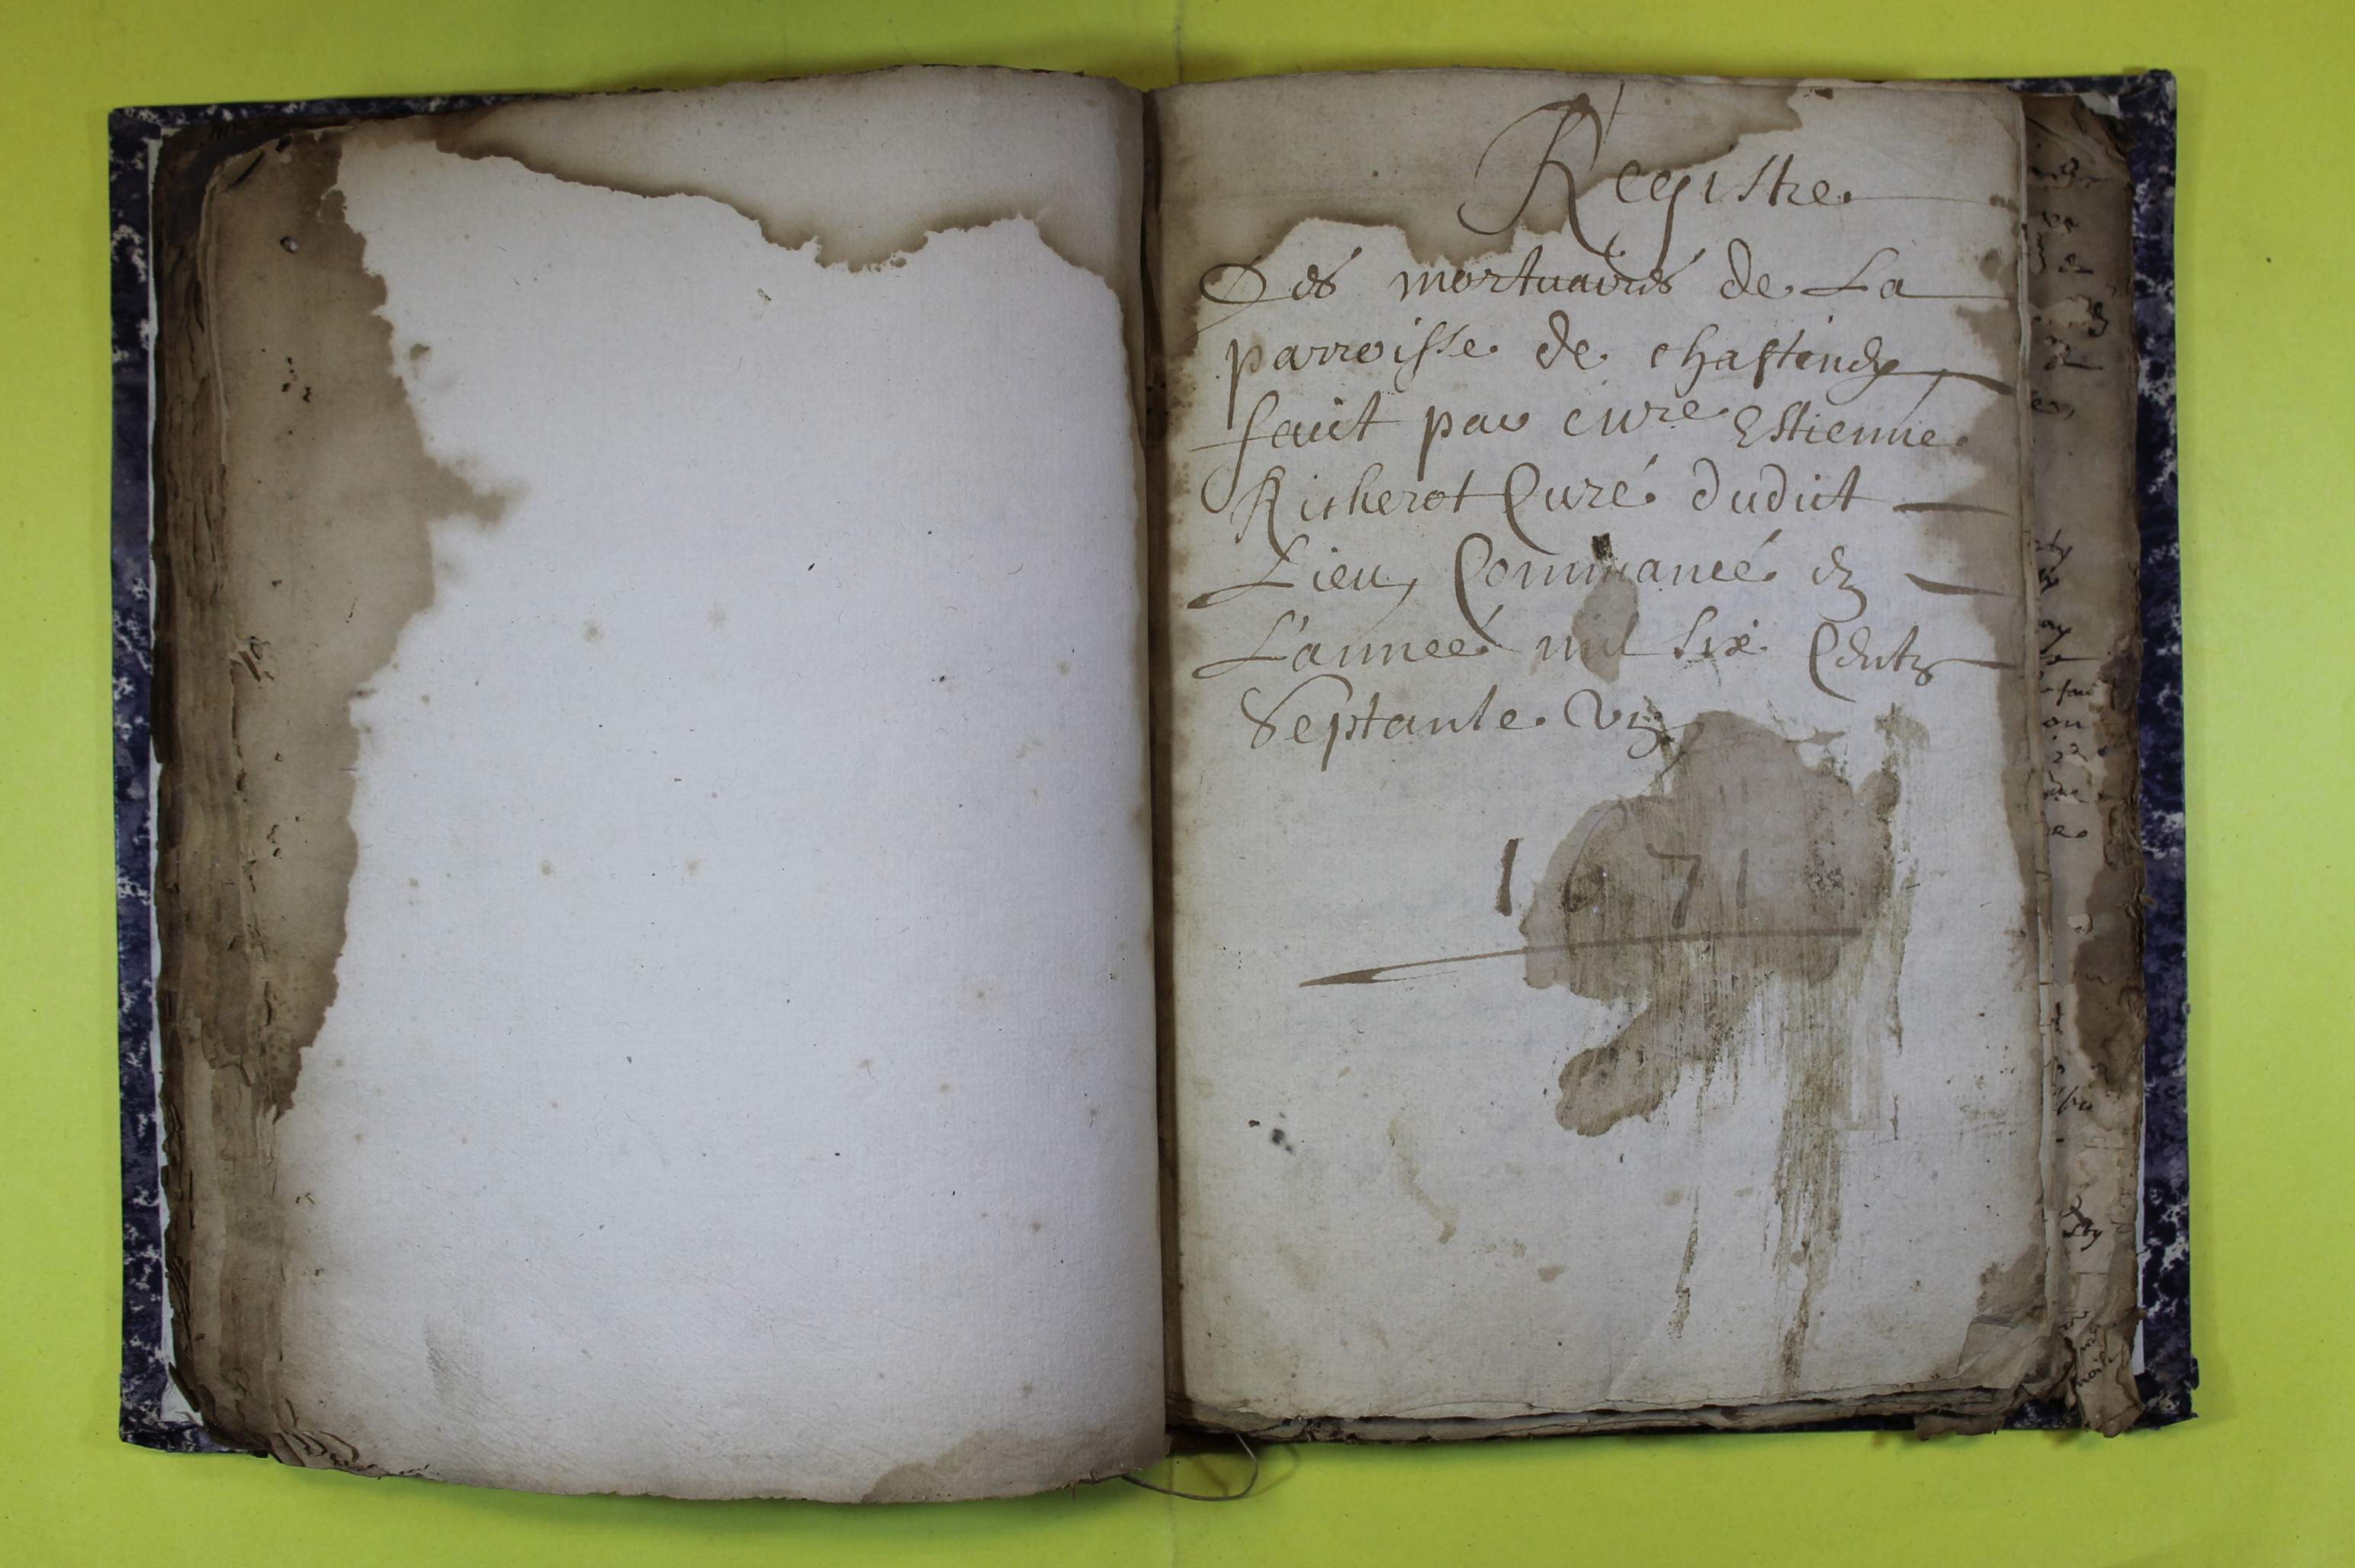 Registre
Des mortuaires de La
parroisse de chastenoy
faict par
Estienne
Richerot Curé dudict
Lieu, Commancé En
L'anneé mil six Centz
Septante Vn
1671